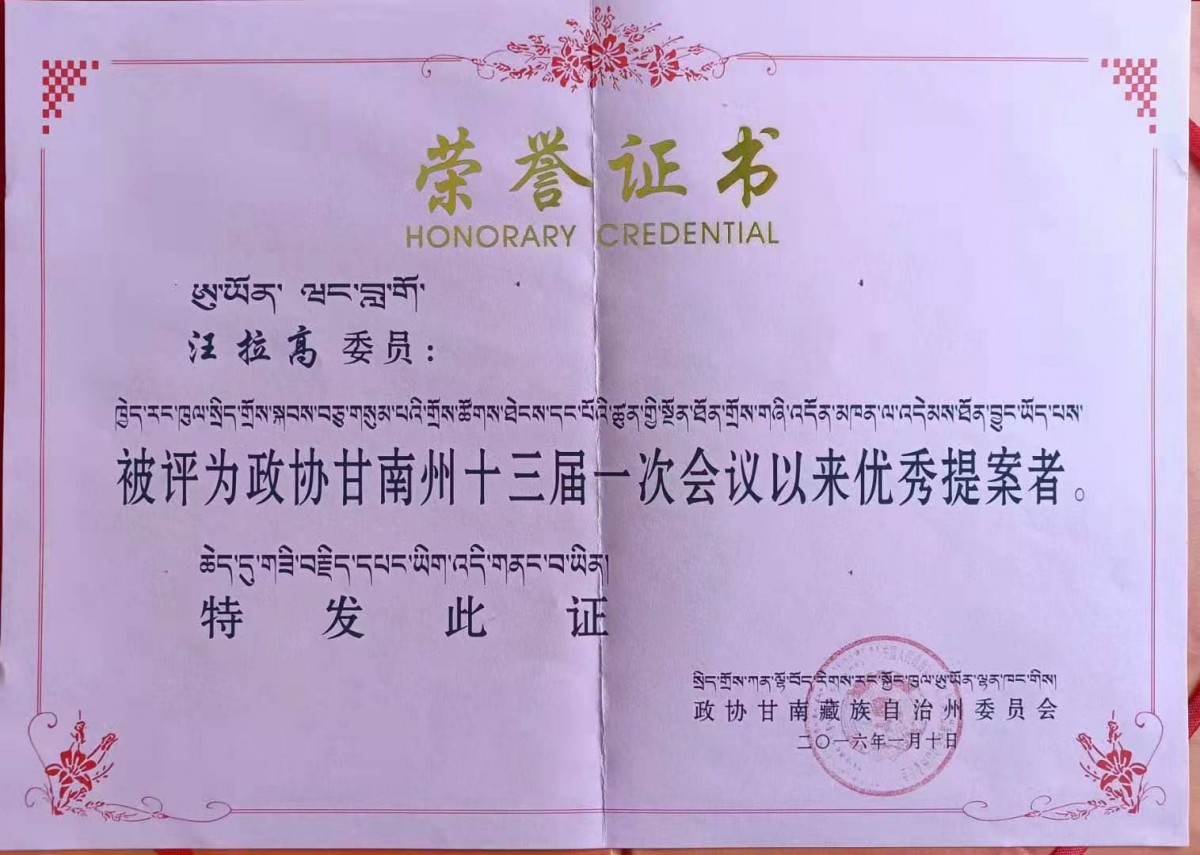 荣誉证书
HONORARY CREDENTIAL
ཨུ་ཡོན་ ལྭང་བླ་གོ་
汪拉高 委员：
ཁྱེད་རང་ཁུལ་སྲིད་གྲོས་སྐབས་བཅུ་གསུམ་པའི་གྲོས་ཚོགས་ཐེངས་དང་པོའི་ཚུན་གྱི་སྔོན་ཐོན་གྲོས་གཞི་འདོན་མཁན་ལ་འདེམས་ཐོན་བྱུང་ཡོད་པས་
被评为政协甘南州十三届一次会议以来优秀提案者。
ཆེད་དུ་གཟི་བརྗིད་དཔང་ཡིག་འདི་གནང་བ་ཡིན།
特发此证
སྲིད་གྲོས་ཀན་ལྷོ་བོད་རིགས་རང་སྐྱོང་ཁུལ་ཨུ་ཡོན་ལྷན་ཁང་གིས།
政协甘南藏族自治州委员会
二〇一六年一月十日